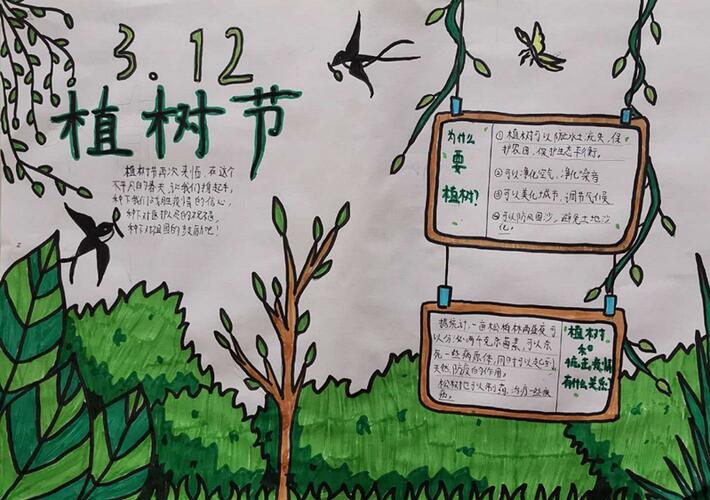 3.12
植树节
植树节再次来临,在这个
不平凡的春天,让我们携起手,
种下我们战胜疫情的信心,
种下对医护人员的祝福,
种下对祖国的鼓励吧!
为什么
要
植树?
①植树可以防止水土流失,保
护农田,保护生态平衡。
②可以净化空气,净化噪音
③可以美化城市,调节气候
④可以防风固沙,避免土地沙
化。
据统计,一亩松柏林两昼夜可
以分泌两千克杀菌素,可以杀
死一些病原体,同时可以起到
天然防疫的作用。
松树也可以制药,治疗一些疾
病。
植树
和
抗击疫情
有什么关系